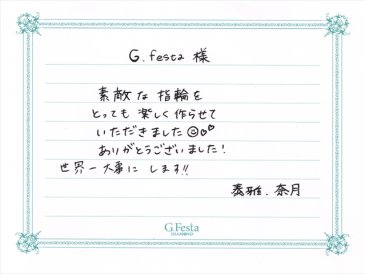 G.festa 様
素敵な 指輪を
とっても 楽しく 作らせて
いただきました☺♡♡
ありがとうございました!
世界一 大事に します!!
泰雅. 奈月
G.Festa
DIAMOND